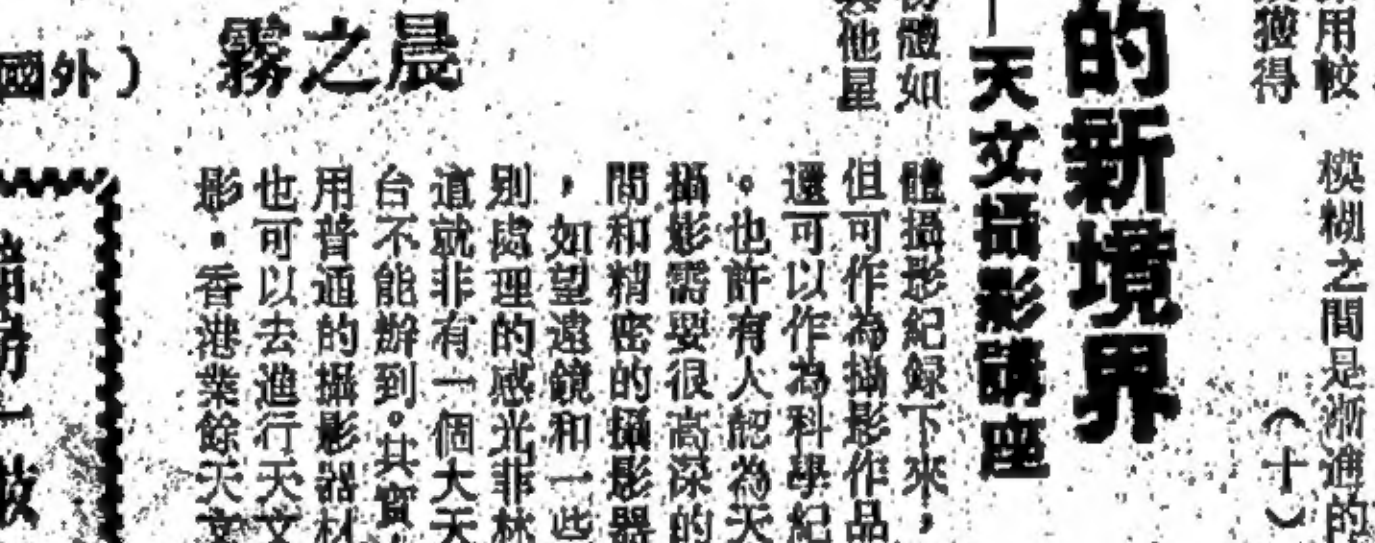 用較
獲得
模糊之間是漸進的
（十）
的新境界
—天文攝影講座
體如
其他星
體攝影紀錄下來，
但可作為攝影作品
還可以作為科學紀
。也許有人認為天
攝影需要很高深的
間和精密的攝影器
，如望遠鏡和一些
別處理的感光菲林
道就非有一個大天
台不能辦到。其實，
用普通的攝影器材
也可以去進行天文
影。香港業餘天文
霧之晨
國外）